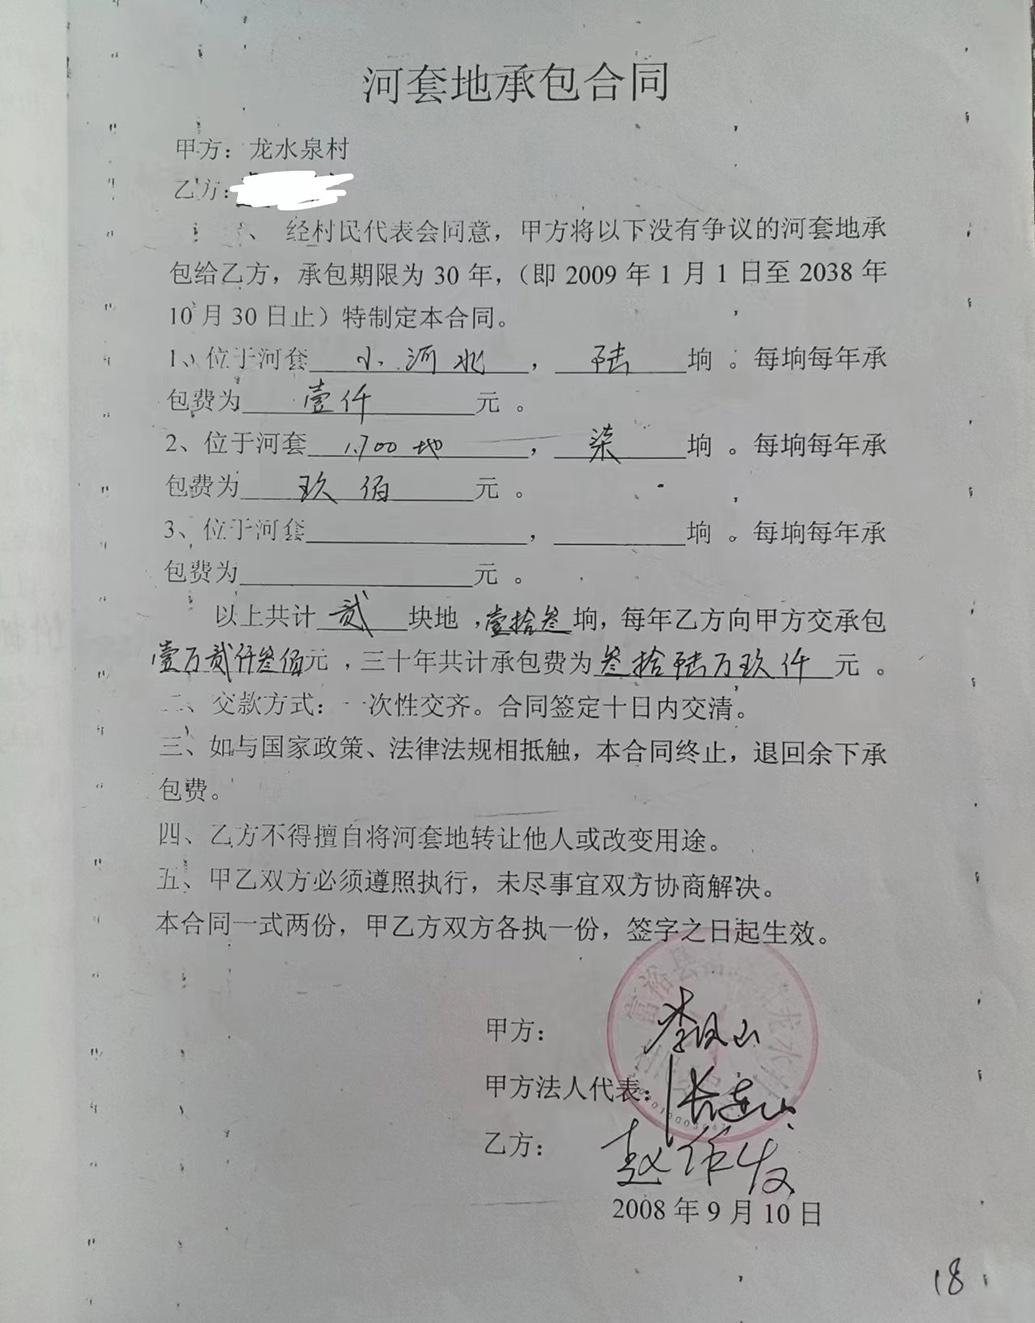 河套地承包合同
甲方：龙水泉村
乙方：
、经村民代表会同意，甲方将以下没有争议的河套地承
包给乙方，承包期限为 30 年，（即 2009 年 1 月 1 日至 2038 年
10 月 30 日止）特制定本合同。
1、位于河套 小河北 ， 陆 垧 。每垧每年承
包费为 壹仟 元 。
2、位于河套 1.700地 ， 柒 垧 。每垧每年承
包费为 玖佰 元 。
3、位于河套 ， 垧 。每垧每年承
包费为 元 。
以上共计 贰 块地 ，壹拾叁垧，每年乙方向甲方交承包
壹万贰仟叁佰元 ，三十年共计承包费为叁拾陆万玖仟 元 。
二、交款方式：一次性交齐。合同签定十日内交清。
三、如与国家政策、法律法规相抵触，本合同终止，退回余下承
包费。
四、乙方不得擅自将河套地转让他人或改变用途。
五、甲乙双方必须遵照执行，未尽事宜双方协商解决。
本合同一式两份，甲乙方双方各执一份，签字之日起生效。
富裕县 龙水
甲方： 李凤山
甲方法人代表： 张连山
乙方： 赵作发
2008 年 9 月 10 日
18